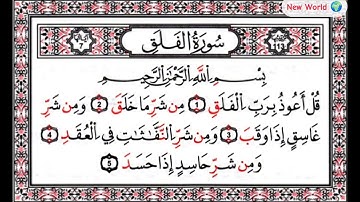 New World
سُورَةُ الْفَلَقِ
بِسْمِ اللَّهِ الرَّحْمَٰنِ الرَّحِيمِ
قُلْ أَعُوذُ بِرَبِّ الْفَلَقِ ١ مِن شَرِّ مَا خَلَقَ ٢ وَمِن شَرِّ
غَاسِقٍ إِذَا وَقَبَ ٣ وَمِن شَرِّ النَّفَّاثَاتِ فِي الْعُقَدِ ٤
وَمِن شَرِّ حَاسِدٍ إِذَا حَسَدَ ٥